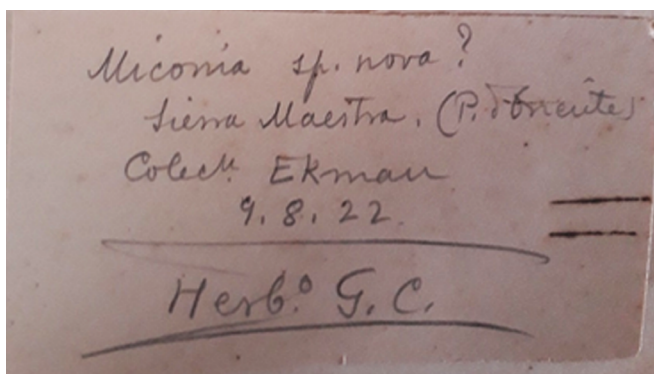 Miconia sp. nova?
Sierra Maestra. (P. d'Oriente)
Colect. Ekman
9. 8. 22.
Herb.º G. C.